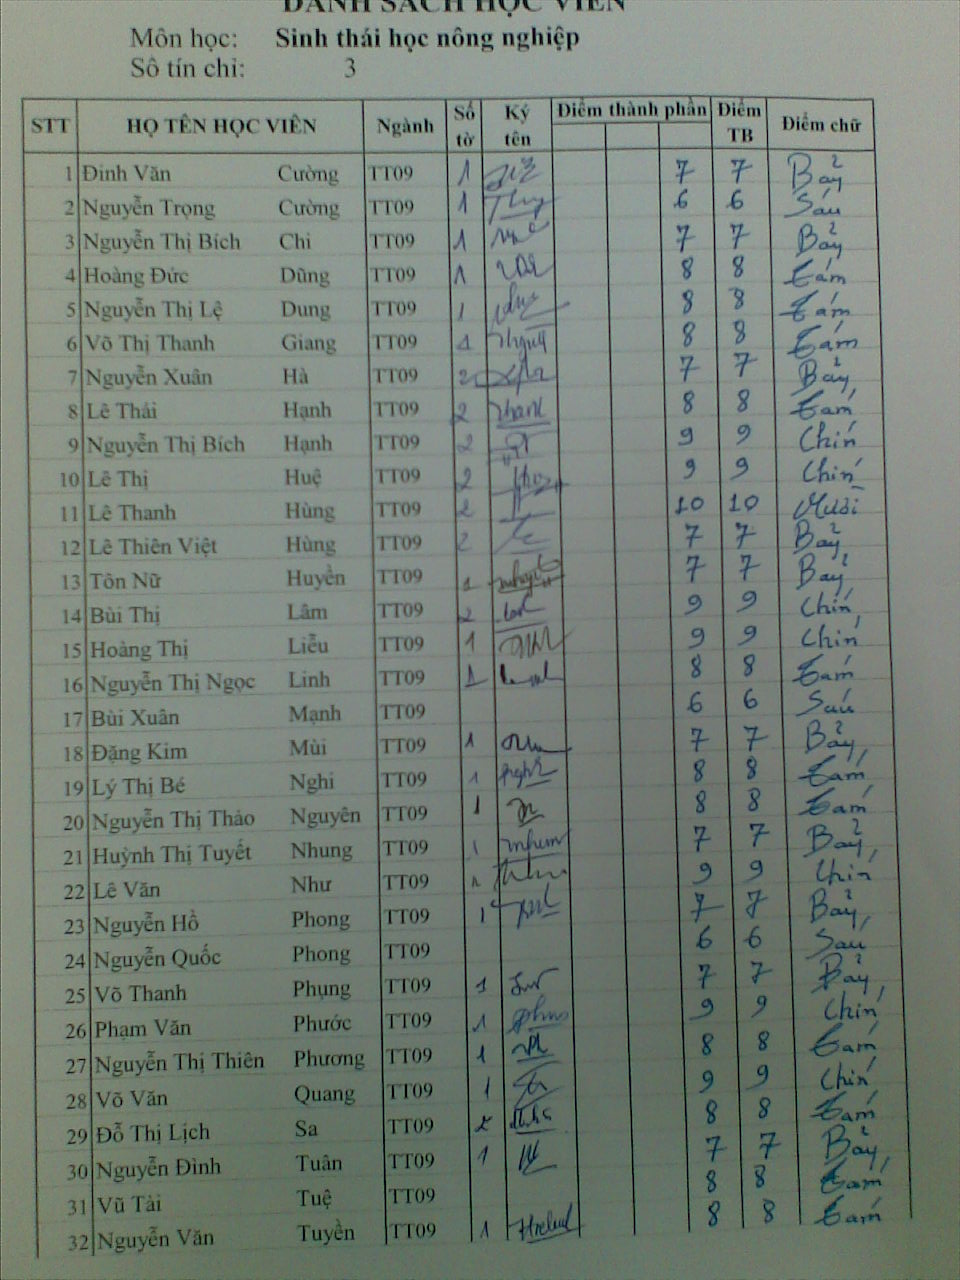 DANH SÁCH HỌC VIÊN
Môn học: Sinh thái học nông nghiệp
Số tín chỉ: 3
STT HỌ TÊN HỌC VIÊN Ngành Số tờ Ký tên Điểm thành phần Điểm TB Điểm chữ
1 Đinh Văn Cường TT09 1 7 7 Bảy
2 Nguyễn Trọng Cường TT09 1 6 6 Sáu
3 Nguyễn Thị Bích Chi TT09 1 7 7 Bảy
4 Hoàng Đức Dũng TT09 1 8 8 Tám
5 Nguyễn Thị Lệ Dung TT09 1 8 8 Tám
6 Võ Thị Thanh Giang TT09 1 8 8 Tám
7 Nguyễn Xuân Hà TT09 2 7 7 Bảy
8 Lê Thái Hạnh TT09 2 8 8 Tám
9 Nguyễn Thị Bích Hạnh TT09 2 9 9 Chín
10 Lê Thị Huệ TT09 2 9 9 Chín
11 Lê Thanh Hùng TT09 2 10 10 Mười
12 Lê Thiên Việt Hùng TT09 2 7 7 Bảy
13 Tôn Nữ Huyền TT09 1 7 7 Bảy
14 Bùi Thị Lâm TT09 2 9 9 Chín
15 Hoàng Thị Liễu TT09 1 9 9 Chín
16 Nguyễn Thị Ngọc Linh TT09 1 8 8 Tám
17 Bùi Xuân Mạnh TT09 6 6 Sáu
18 Đặng Kim Mùi TT09 1 7 7 Bảy
19 Lý Thị Bé Nghi TT09 1 8 8 Tám
20 Nguyễn Thị Thảo Nguyên TT09 1 8 8 Tám
21 Huỳnh Thị Tuyết Nhung TT09 1 7 7 Bảy
22 Lê Văn Như TT09 9 9 Chín
23 Nguyễn Hồ Phong TT09 1 7 7 Bảy
24 Nguyễn Quốc Phong TT09 6 6 Sáu
25 Võ Thanh Phụng TT09 1 7 7 Bảy
26 Phạm Văn Phước TT09 1 9 9 Chín
27 Nguyễn Thị Thiên Phương TT09 1 8 8 Tám
28 Võ Văn Quang TT09 1 9 9 Chín
29 Đỗ Thị Lịch Sa TT09 8 8 Tám
30 Nguyễn Đình Tuân TT09 1 7 7 Bảy
31 Vũ Tài Tuệ TT09 8 8 Tám
32 Nguyễn Văn Tuyền TT09 1 8 8 Tám